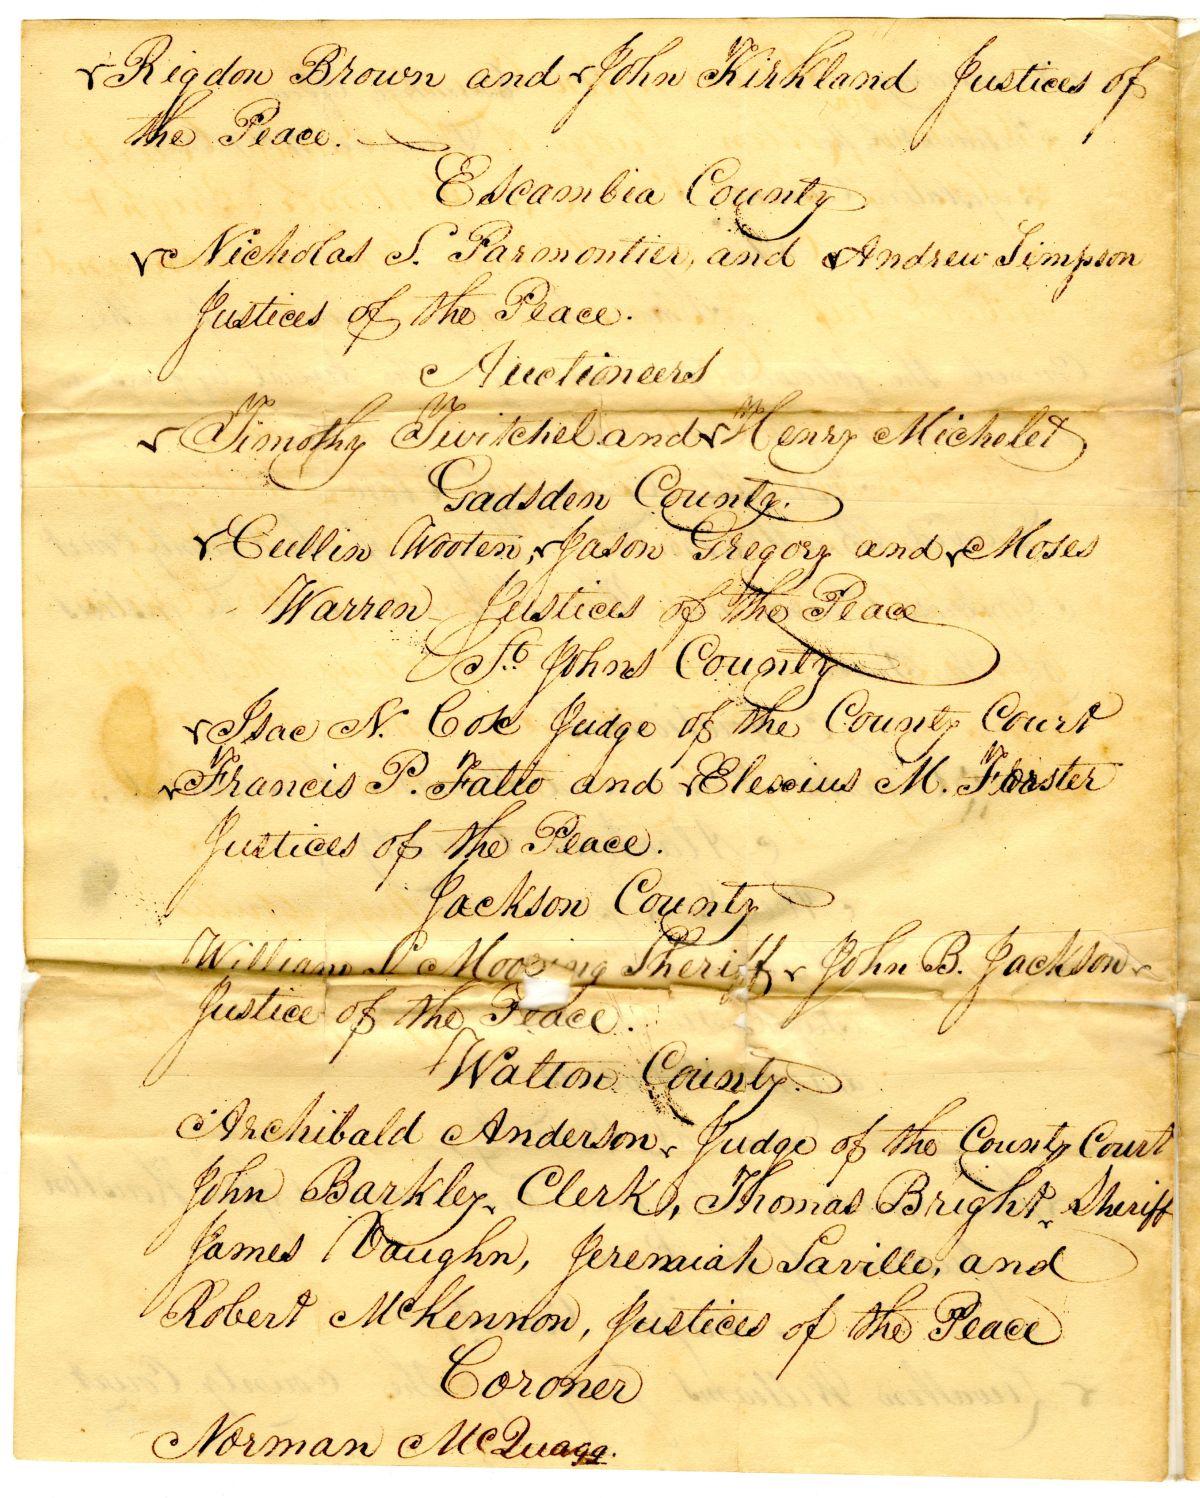 Rigdon Brown and John Kirkland Justices of
the Peace.
Escambia County
Nicholas S. Parmontier, and Andrew Simpson
Justices of the Peace.
Auctioneers
Timothy Twitchel and Henry Michelet
Gadsden County.
Cullin Wooten, Jason Gregory and Moses
Warren Justices of the Peace
St. Johns County
Isac N. Cox Judge of the County Court
Francis P. Fatto and Elexius M. Forster
Justices of the Peace.
Jackson County
William S. Mooring Sheriff John B. Jackson
Justice of the Peace.
Walton County.
Archibald Anderson, Judge of the County Court
John Barkley, Clerk, Thomas Bright, Sheriff
James Vaughn, Jeremiah Saville, and
Robert McKennon, Justices of the Peace
Coroner
Norman McQuagg.